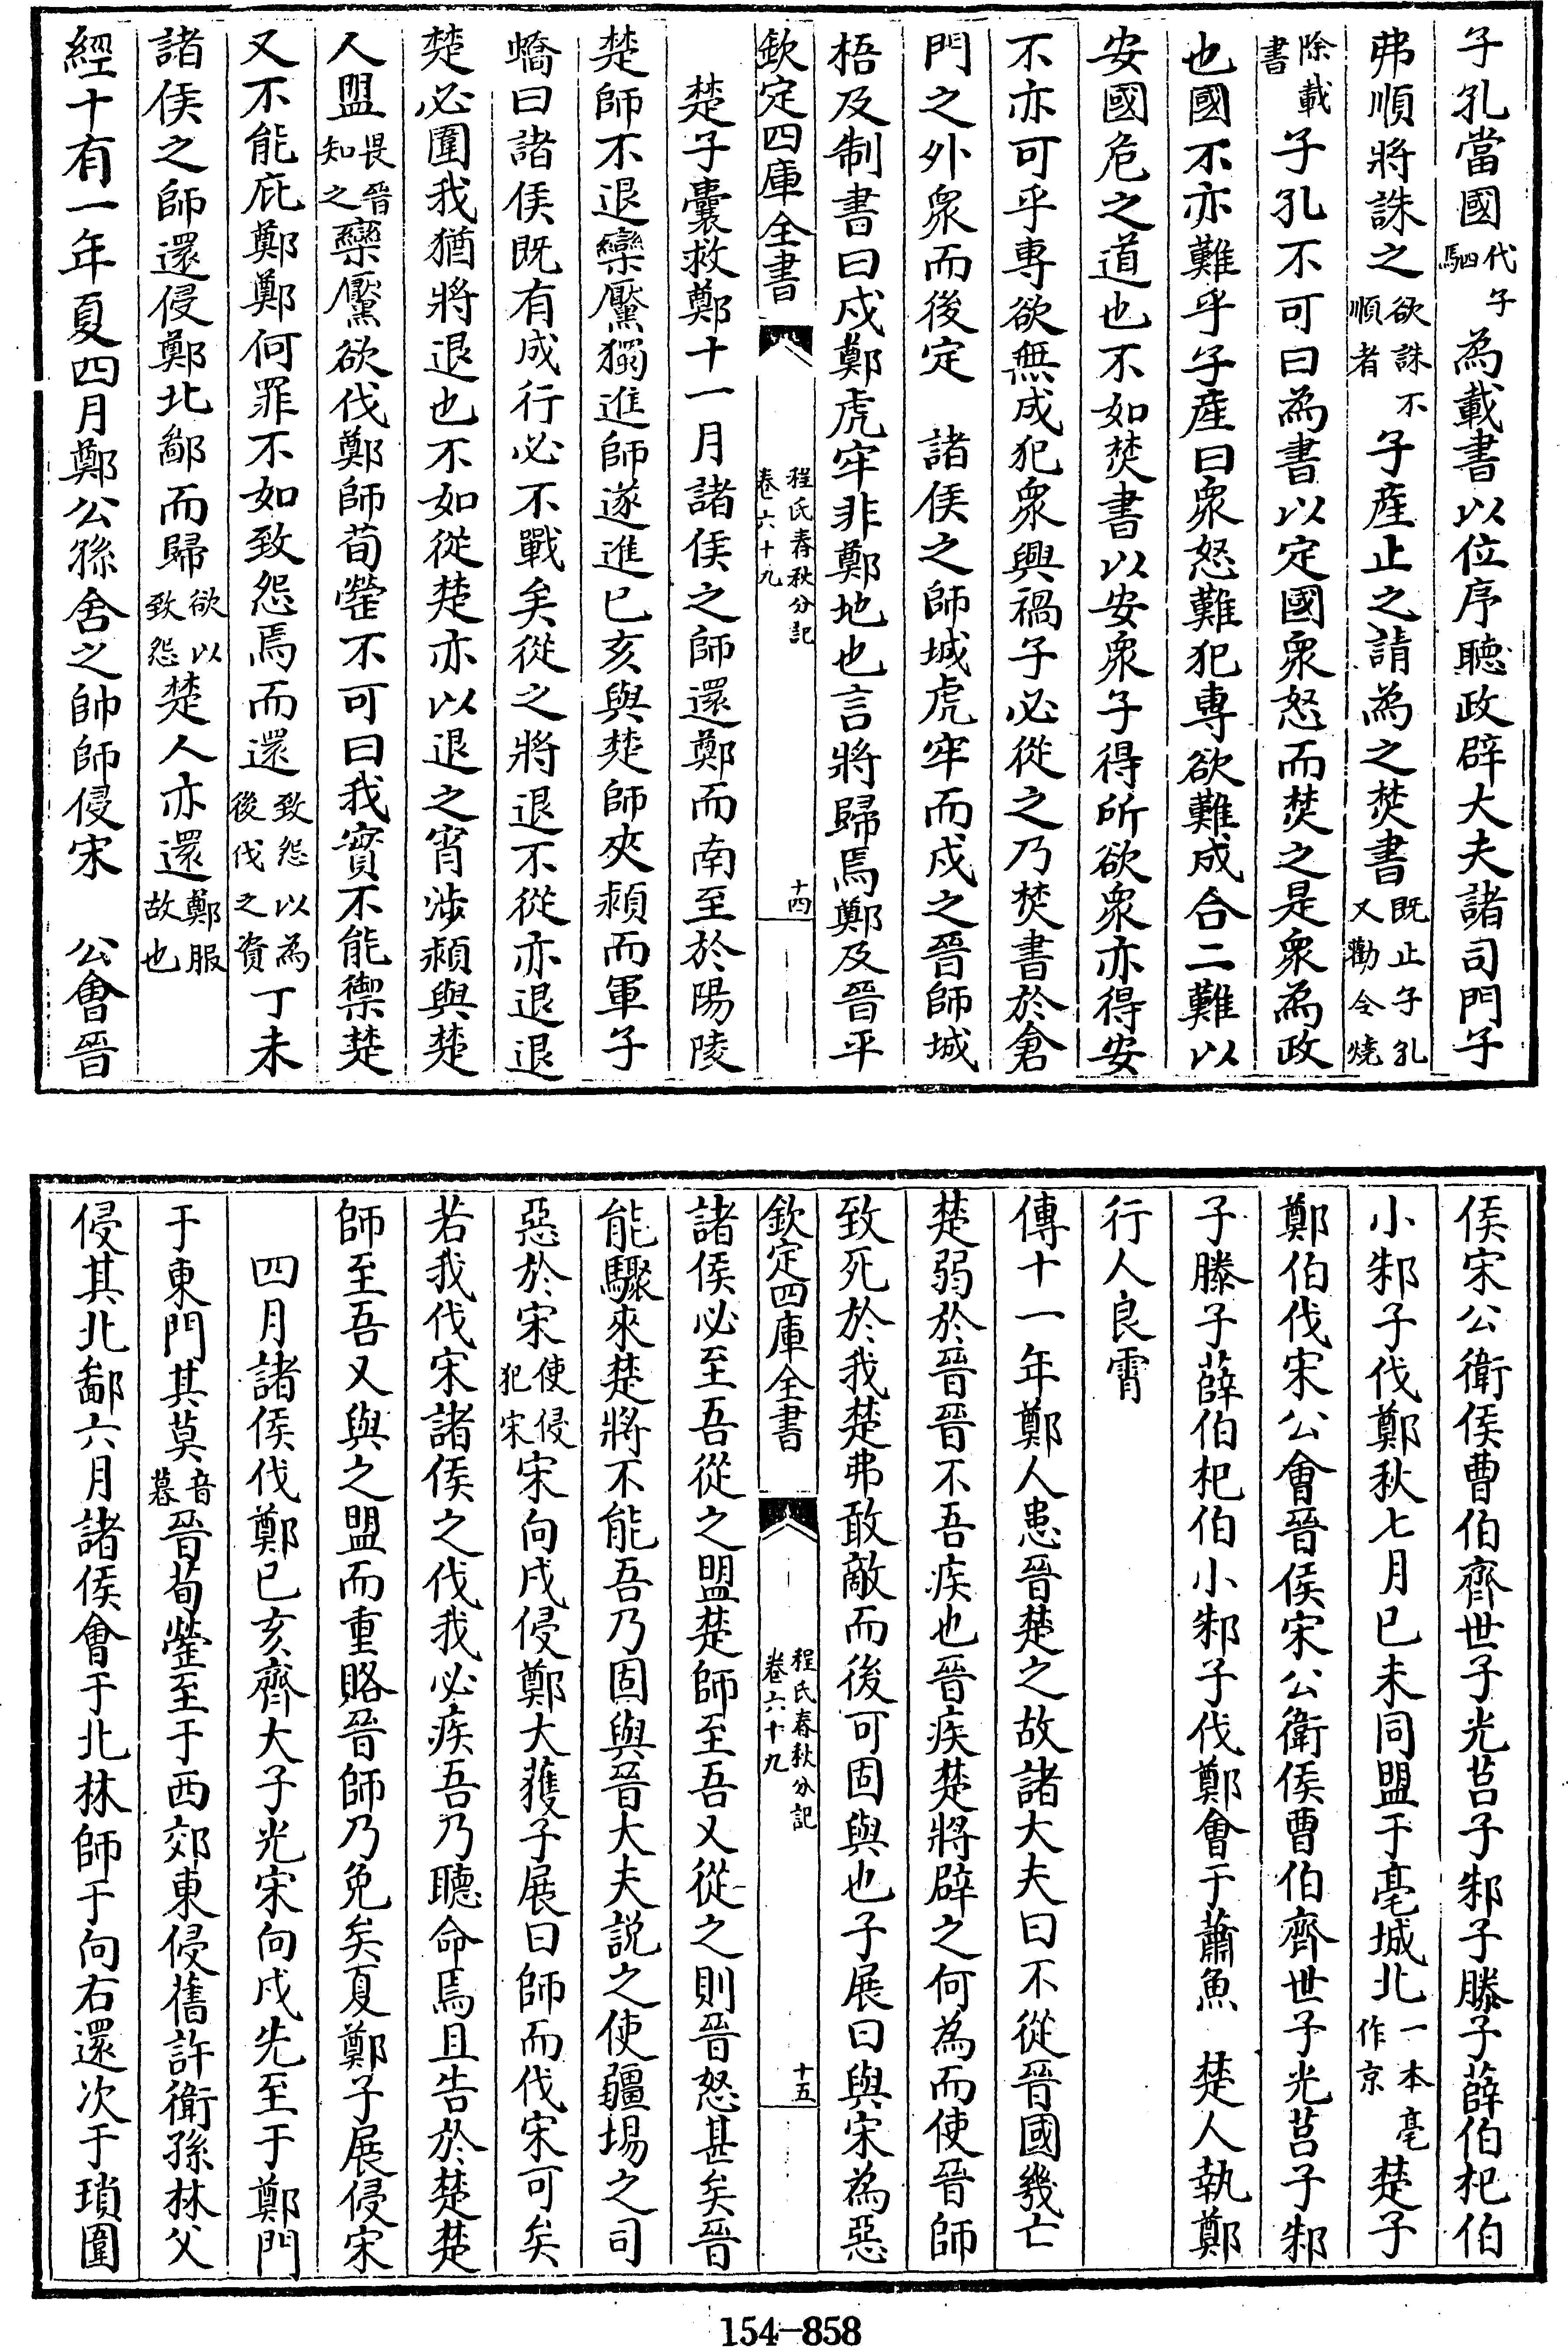 子孔當國代子駟為載書以位序聽政辟大夫諸司門子
弗順將誅之欲誅不順者子産止之請為之焚書既止子孔又勸令燒
除載書子孔不可曰為書以定國衆怒而焚之是衆為政
也國不亦難乎子産曰衆怒難犯專欲難成合二難以
安國危之道也不如焚書以安衆子得所欲衆亦得安
不亦可乎專欲無成犯衆興禍子必從之乃焚書於倉
門之外衆而後定　諸侯之師城虎牢而戍之晉師城
梧及制書曰戍鄭虎牢非鄭地也言將歸焉鄭及晉平
欽定四庫全書　程氏春秋分記卷六十九　十四
楚子囊救鄭十一月諸侯之師還鄭而南至於陽陵
楚師不退欒黶獨進師遂進已亥與楚師夾潁而軍子
蟜曰諸侯既有成行必不戰矣從之將退不從亦退退
楚必圍我猶將退也不如從楚亦以退之宵涉潁與楚
人盟畏晉知之欒黶欲伐鄭師荀罃不可曰我實不能禦楚
又不能庇鄭鄭何罪不如致怨焉而還致怨以為後伐之資丁未
諸侯之師還侵鄭北鄙而歸欲以致怨楚人亦還鄭服故也
經十有一年夏四月鄭公孫舍之帥師侵宋　公會晉
侯宋公衛侯曹伯齊世子光莒子邾子滕子薛伯杞伯
小邾子伐鄭秋七月已未同盟于亳城北一本亳作京楚子
鄭伯伐宋公會晉侯宋公衛侯曹伯齊世子光莒子邾
子滕子薛伯杞伯小邾子伐鄭會于蕭魚　楚人執鄭
行人良霄
傳十一年鄭人患晉楚之故諸大夫曰不從晉國幾亡
楚弱於晉晉不吾疾也晉疾楚將辟之何為而使晉師
致死於我楚弗敢敵而後可固與也子展曰與宋為惡
欽定四庫全書　程氏春秋分記卷六十九　十五
諸侯必至吾從之盟楚師至吾又從之則晉怒甚矣晉
能驟來楚將不能吾乃固與晉大夫説之使疆場之司
惡於宋使侵犯宋宋向戌侵鄭大獲子展曰師而伐宋可矣
若我伐宋諸侯之伐我必疾吾乃聽命焉且告於楚楚
師至吾又與之盟而重賂晉師乃免矣夏鄭子展侵宋
四月諸侯伐鄭已亥齊大子光宋向戌先至于鄭門
于東門其莫音暮晉荀罃至于西郊東侵舊許衛孫林父
侵其北鄙六月諸侯會于北林師于向右還次于瑣圍
154-858